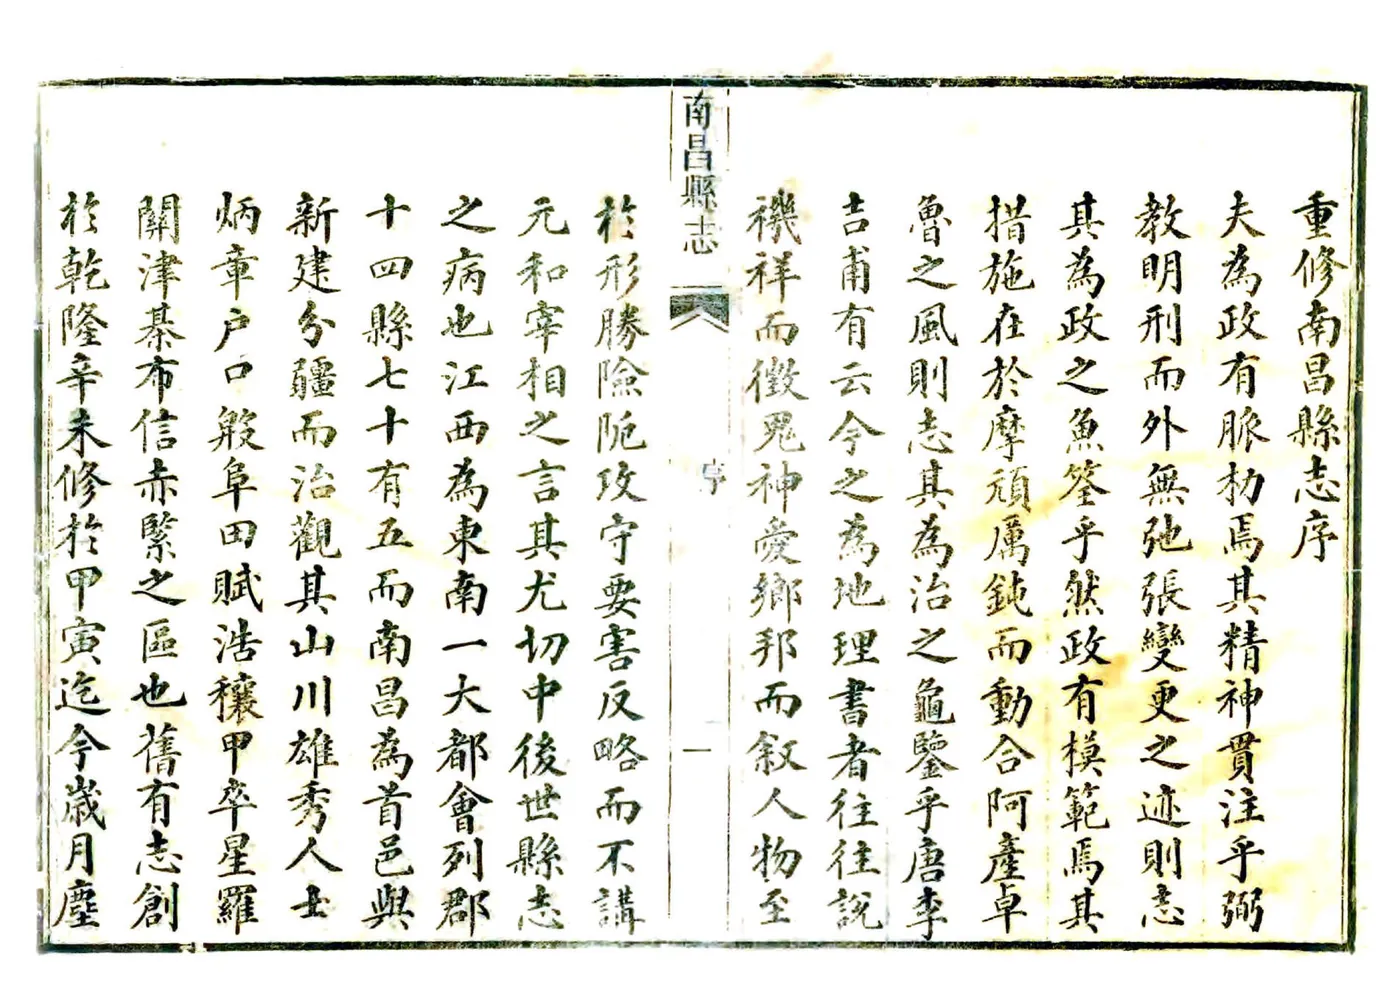 重修南昌縣志序
夫為政有脈朸焉其精神貫注乎弼
教明刑而外無弛張變更之迹則志
其為政之魚筌乎然政有模範焉其
措施在於摩頑厲鈍而動合阿產卓
魯之風則志其為治之龜鑒乎唐李
吉甫有云今之為地理書者往往說
禨祥而徵鬼神愛鄉邦而敘人物至
南昌縣志
序
一
於形勝險阨攻守要害反略而不講
元和宰相之言其尤切中後世縣志
之病也江西為東南一大都會列郡
十四縣七十有五而南昌為首邑與
新建分疆而治觀其山川雄秀人士
炳章戶口殷阜田賦浩穰甲卒星羅
關津棊布信赤緊之區也舊有志創
於乾隆辛未修於甲寅迄今歲月塵